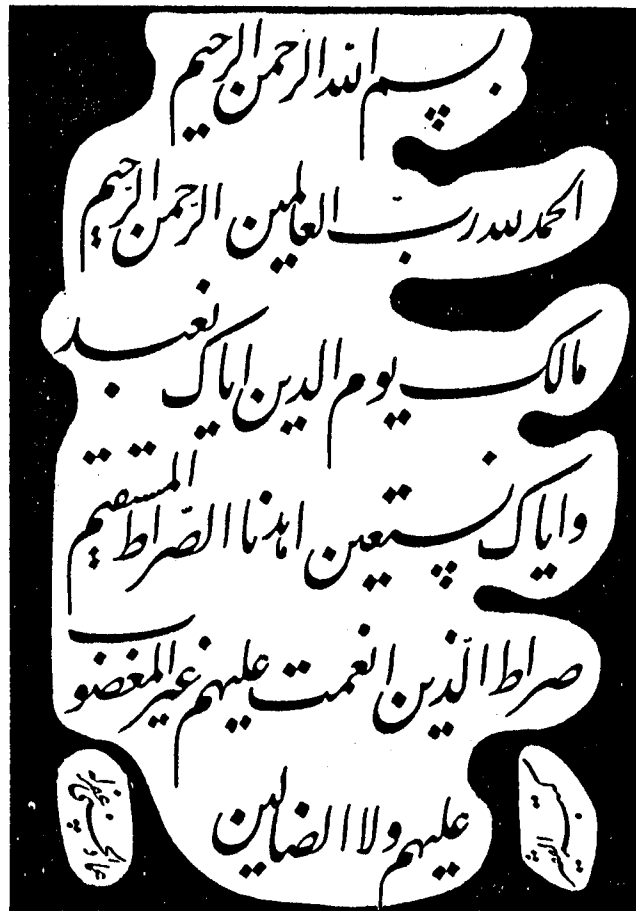 بسم الله الرحمن الرحیم
الحمد لله ربّ العالمین الرّحمن الرّحیم
مالک یوم الدین ایاک نعبد
وایاک نستعین اهدنا الصّراط المستقیم
صراط الّذین انعمت علیهم غیر المغضوب
علیهم ولا الضالین
عماد الحسنی غفرله